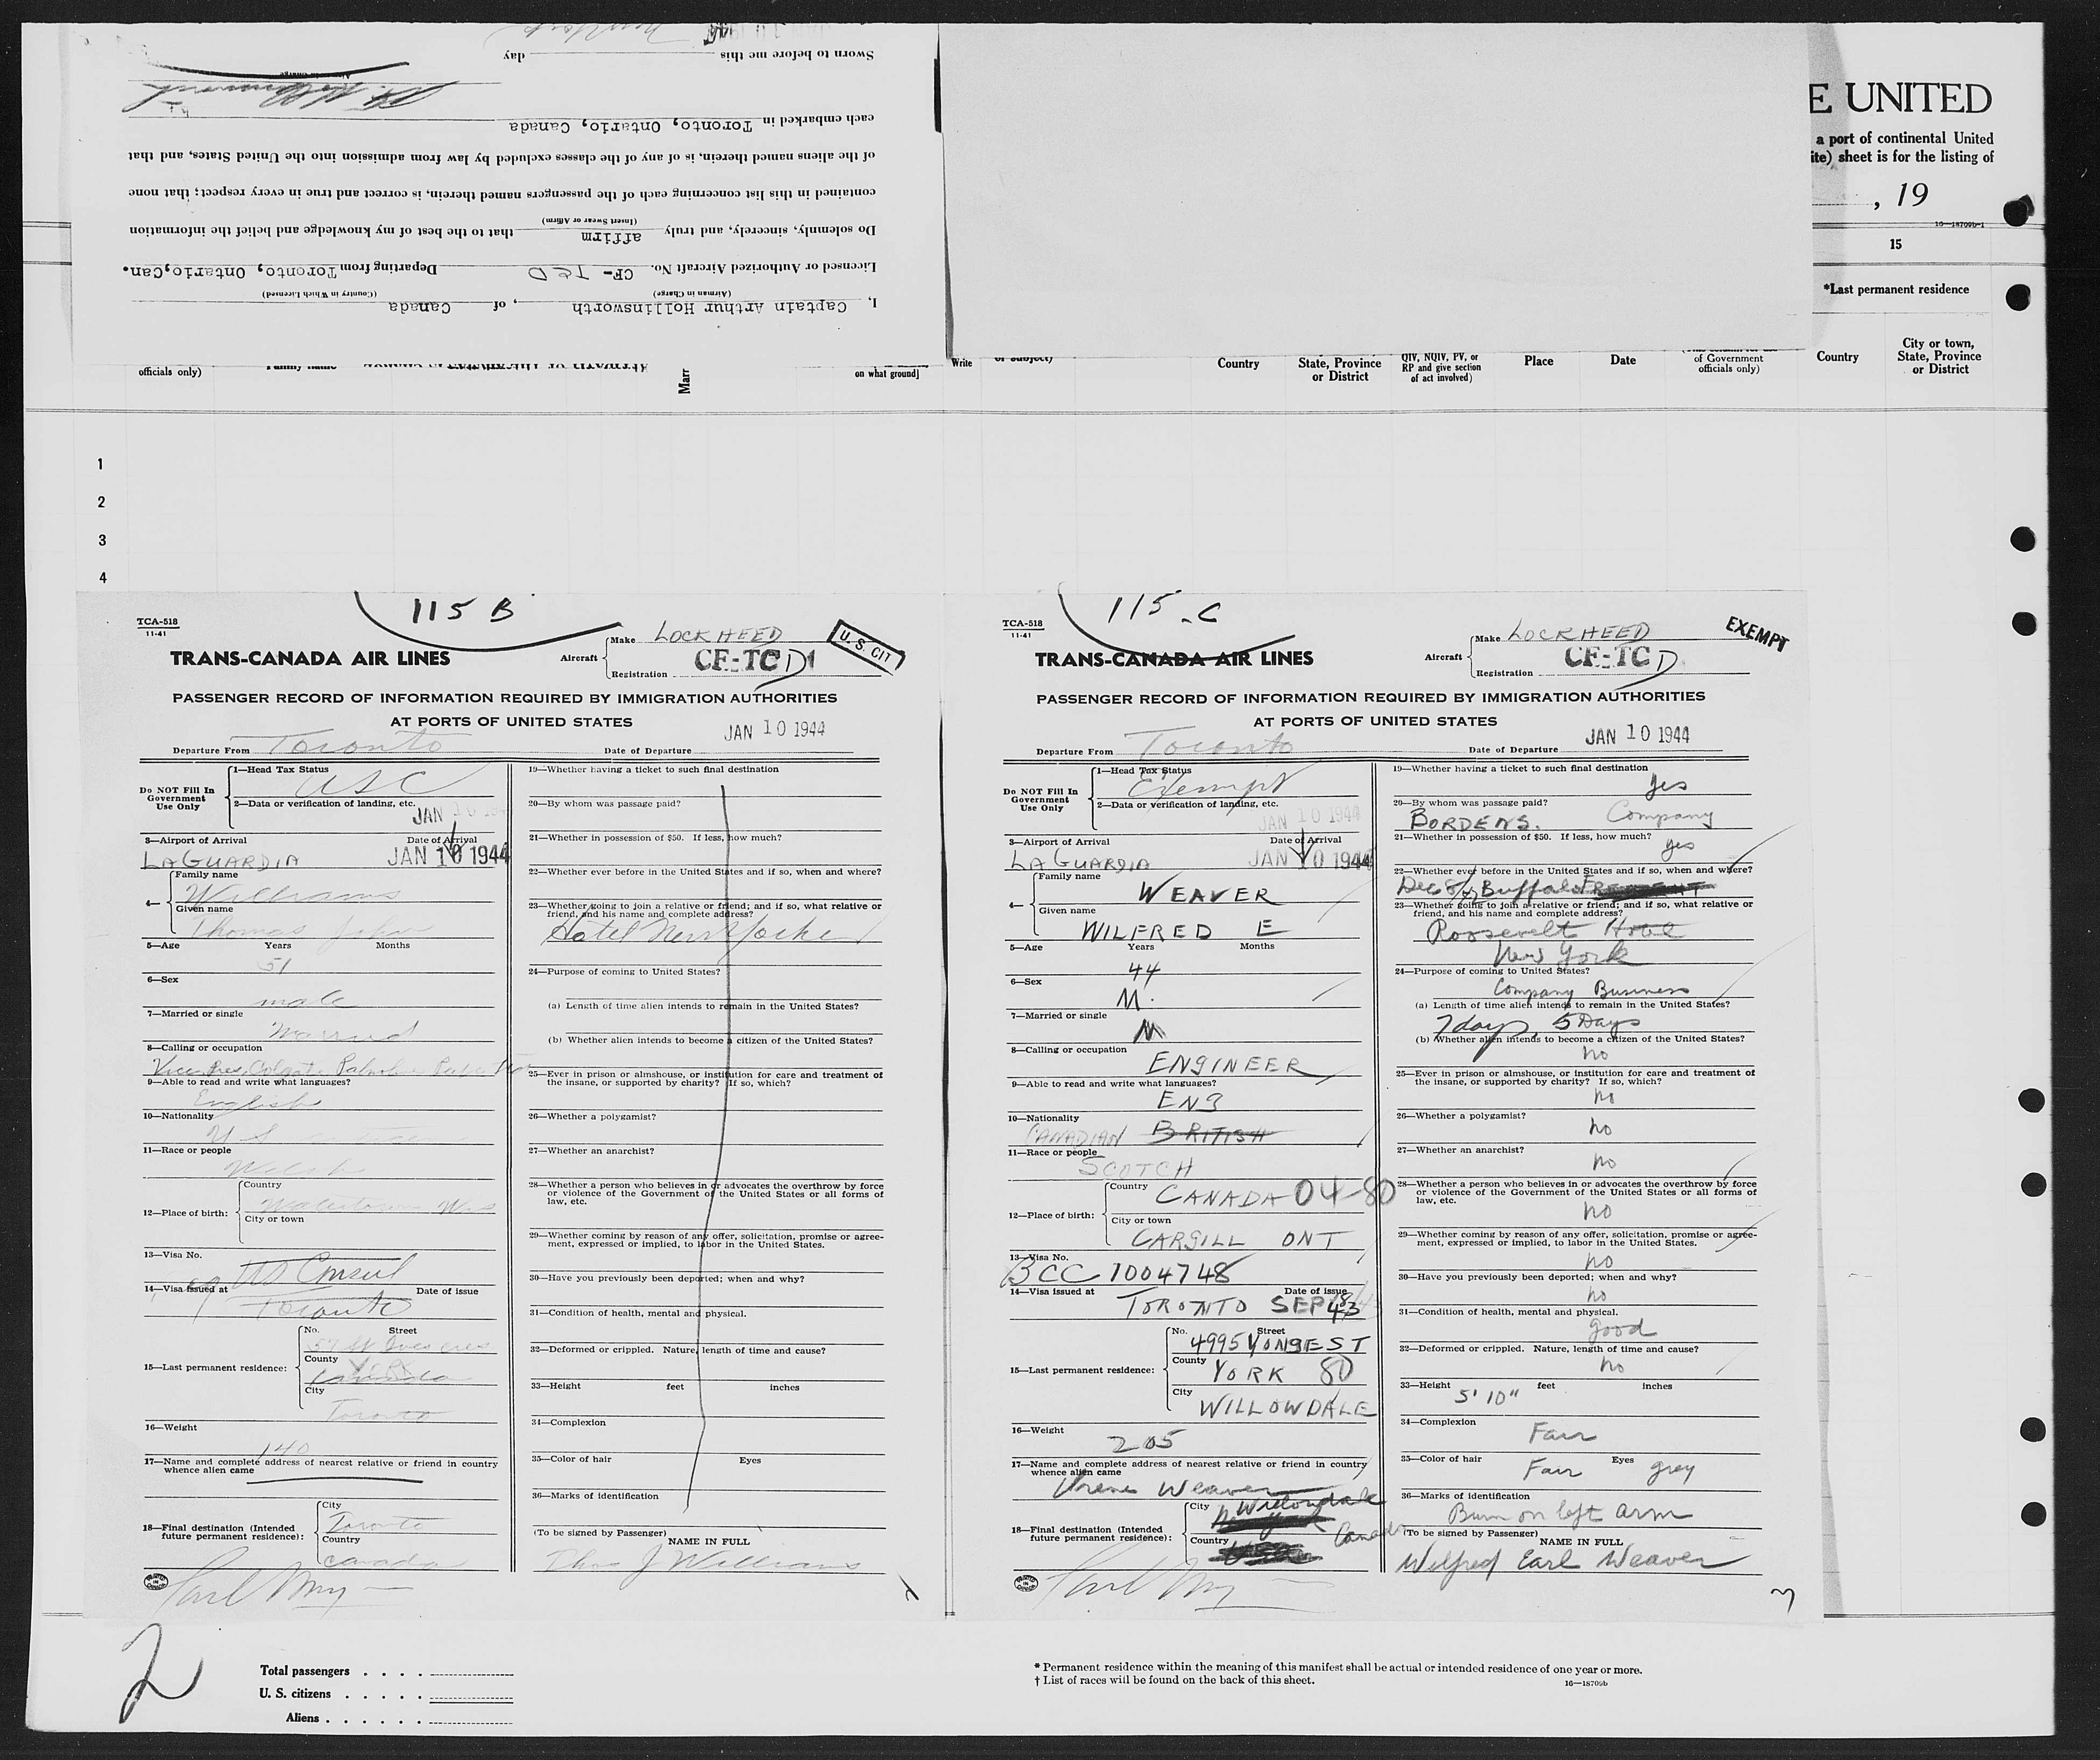 Sworn to before me this day
each embarked in Toronto, Ontario, Canada
of the aliens named therein, is of any of the classes excluded by law from admission into the United States, and that
contained in this list concerning each of the passengers named therein, is correct and true in every respect; that none
(Insert Swear or Affirm)
Do solemnly, sincerely, and truly affirm that to the best of my knowledge and belief the information
Licensed or Authorized Aircraft No. CF- TCD Departing from Toronto, Ontario, Can.
(Airman in Charge) (Country in Which Licensed)
I, Captain Arthur Hollinsworth, of Canada
E UNITED
a port of continental United
ite) sheet is for the listing of
, 19
16—18709b-1
15
*Last permanent residence
officials only)
Family name
Marr
on what ground]
Write
of subject)
Country
State, Province
or District
QIV, NQIV, PV, or
RP and give section
of act involved)
Place
Date
of Government
officials only)
Country
City or town,
State, Province
or District
1
2
3
4
115 B
TCA-518
11-41
TRANS-CANADA AIR LINES
Aircraft
Make LOCKHEED
Registration CF-TCD
U. S. CIT
PASSENGER RECORD OF INFORMATION REQUIRED BY IMMIGRATION AUTHORITIES
AT PORTS OF UNITED STATES
JAN 10 1944
Departure From Toronto Date of Departure
Do NOT Fill In
Government
Use Only
1—Head Tax Status
USC
2—Data or verification of landing, etc.
JAN 10 19
3—Airport of Arrival Date of Arrival
LAGUARDIA JAN 10 1944
4— Family name
Williams
Given name
Thomas John
5—Age Years Months
51
6—Sex
male
7—Married or single
Married
8—Calling or occupation
Vice Pres. Colgate Palmolive Peet
9—Able to read and write what languages?
English
10—Nationality
U S
11—Race or people
Welsh
12—Place of birth: Country
Watertown Wis
City or town
13—Visa No.
US Consul
14—Visa issued at Date of issue
Toronto
15—Last permanent residence: No. Street
County
York
City
Toronto
16—Weight
140
17—Name and complete address of nearest relative or friend in country
whence alien came
18—Final destination (Intended
future permanent residence): City
Toronto
Country
Canada
PRINTED IN CANADA
19—Whether having a ticket to such final destination
20—By whom was passage paid?
21—Whether in possession of $50. If less, how much?
22—Whether ever before in the United States and if so, when and where?
23—Whether going to join a relative or friend; and if so, what relative or
friend, and his name and complete address?
Hotel New Yorker
24—Purpose of coming to United States?
(a) Length of time alien intends to remain in the United States?
(b) Whether alien intends to become a citizen of the United States?
25—Ever in prison or almshouse, or institution for care and treatment of
the insane, or supported by charity? If so, which?
26—Whether a polygamist?
27—Whether an anarchist?
28—Whether a person who believes in or advocates the overthrow by force
or violence of the Government of the United States or all forms of
law, etc.
29—Whether coming by reason of any offer, solicitation, promise or agree-
ment, expressed or implied, to labor in the United States.
30—Have you previously been deported; when and why?
31—Condition of health, mental and physical.
32—Deformed or crippled. Nature, length of time and cause?
33—Height feet inches
34—Complexion
35—Color of hair Eyes
36—Marks of identification
(To be signed by Passenger)
NAME IN FULL
Thos J Williams
115-C
TCA-518
11-41
TRANS-CANADA AIR LINES
Aircraft
Make LOCKHEED
Registration CF-TCD
EXEMPT
PASSENGER RECORD OF INFORMATION REQUIRED BY IMMIGRATION AUTHORITIES
AT PORTS OF UNITED STATES
JAN 10 1944
Departure From Toronto Date of Departure
Do NOT Fill In
Government
Use Only
1—Head Tax Status
Exempt
2—Data or verification of landing, etc.
JAN 10 1944
3—Airport of Arrival Date of Arrival
LAGUARDIA JAN 10 1944
4— Family name
WEAVER
Given name
WILFRED E
5—Age Years Months
44
6—Sex
M.
7—Married or single
M
8—Calling or occupation
ENGINEER
9—Able to read and write what languages?
ENG
10—Nationality
CANADIAN BRITISH
11—Race or people
SCOTCH
12—Place of birth: Country
CANADA 04-80
City or town
CARGILL ONT
13—Visa No.
BCC 1004748
14—Visa issued at Date of issue
TORONTO SEP 43
15—Last permanent residence: No. Street
4995 YONGE ST
County
YORK 80
City
WILLOWDALE
16—Weight
205
17—Name and complete address of nearest relative or friend in country
whence alien came
Weaver
18—Final destination (Intended
future permanent residence): City
Willowdale
Country
Canada
PRINTED IN CANADA
19—Whether having a ticket to such final destination
yes
20—By whom was passage paid?
BORDENS. Company
21—Whether in possession of $50. If less, how much?
yes
22—Whether ever before in the United States and if so, when and where?
Dec 8/42 Buffalo
23—Whether going to join a relative or friend; and if so, what relative or
friend, and his name and complete address?
Roosevelt Hotel
New York
24—Purpose of coming to United States?
Company Business
(a) Length of time alien intends to remain in the United States?
7 days, 5 Days
(b) Whether alien intends to become a citizen of the United States?
no
25—Ever in prison or almshouse, or institution for care and treatment of
the insane, or supported by charity? If so, which?
no
26—Whether a polygamist?
no
27—Whether an anarchist?
no
28—Whether a person who believes in or advocates the overthrow by force
or violence of the Government of the United States or all forms of
law, etc.
no
29—Whether coming by reason of any offer, solicitation, promise or agree-
ment, expressed or implied, to labor in the United States.
no
30—Have you previously been deported; when and why?
no
31—Condition of health, mental and physical.
good
32—Deformed or crippled. Nature, length of time and cause?
no
33—Height feet inches
5' 10"
34—Complexion
Fair
35—Color of hair Eyes
Fair grey
36—Marks of identification
Burn on left arm
(To be signed by Passenger)
NAME IN FULL
Wilfred Earl Weaver
3
2
Total passengers . . . .
U. S. citizens . . . . .
Aliens . . . . . .
* Permanent residence within the meaning of this manifest shall be actual or intended residence of one year or more.
† List of races will be found on the back of this sheet.
16—18709b